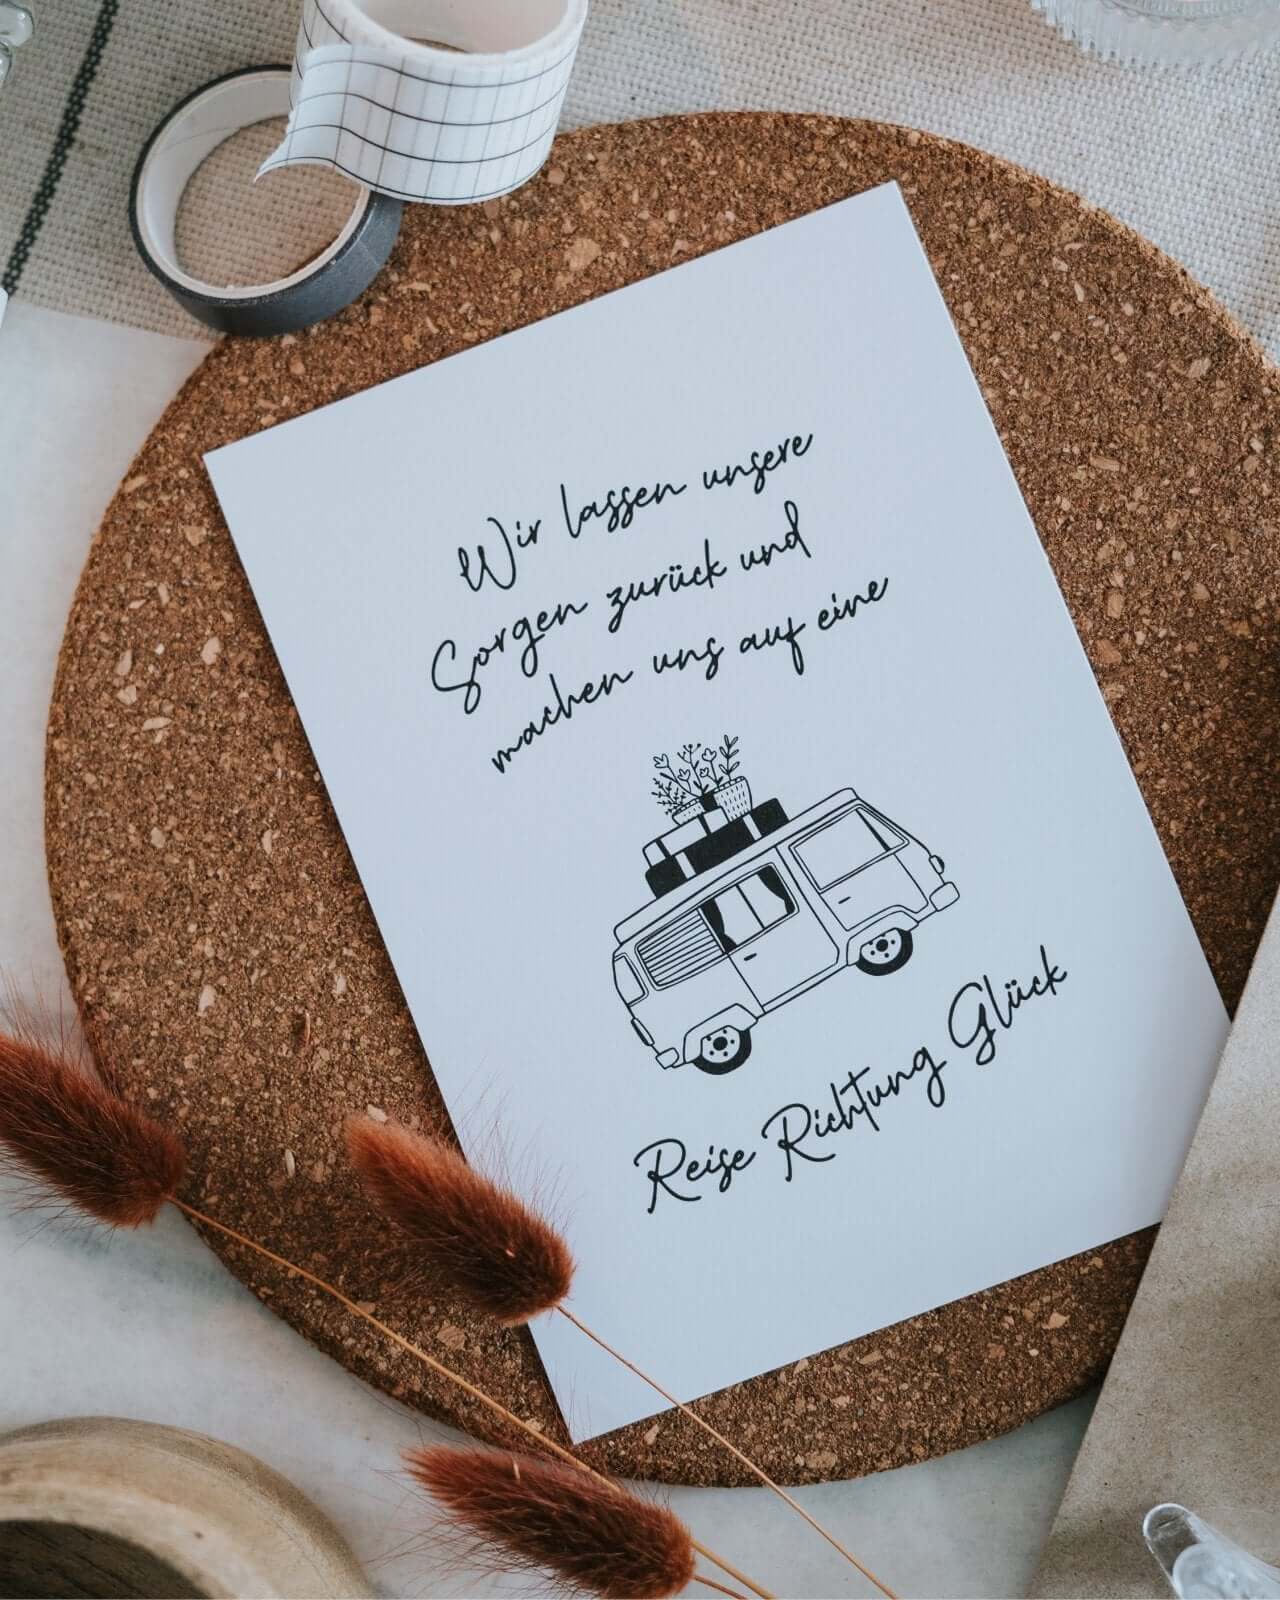 Wir lassen unsere
Sorgen zurück und
machen uns auf eine
Reise Richtung Glück